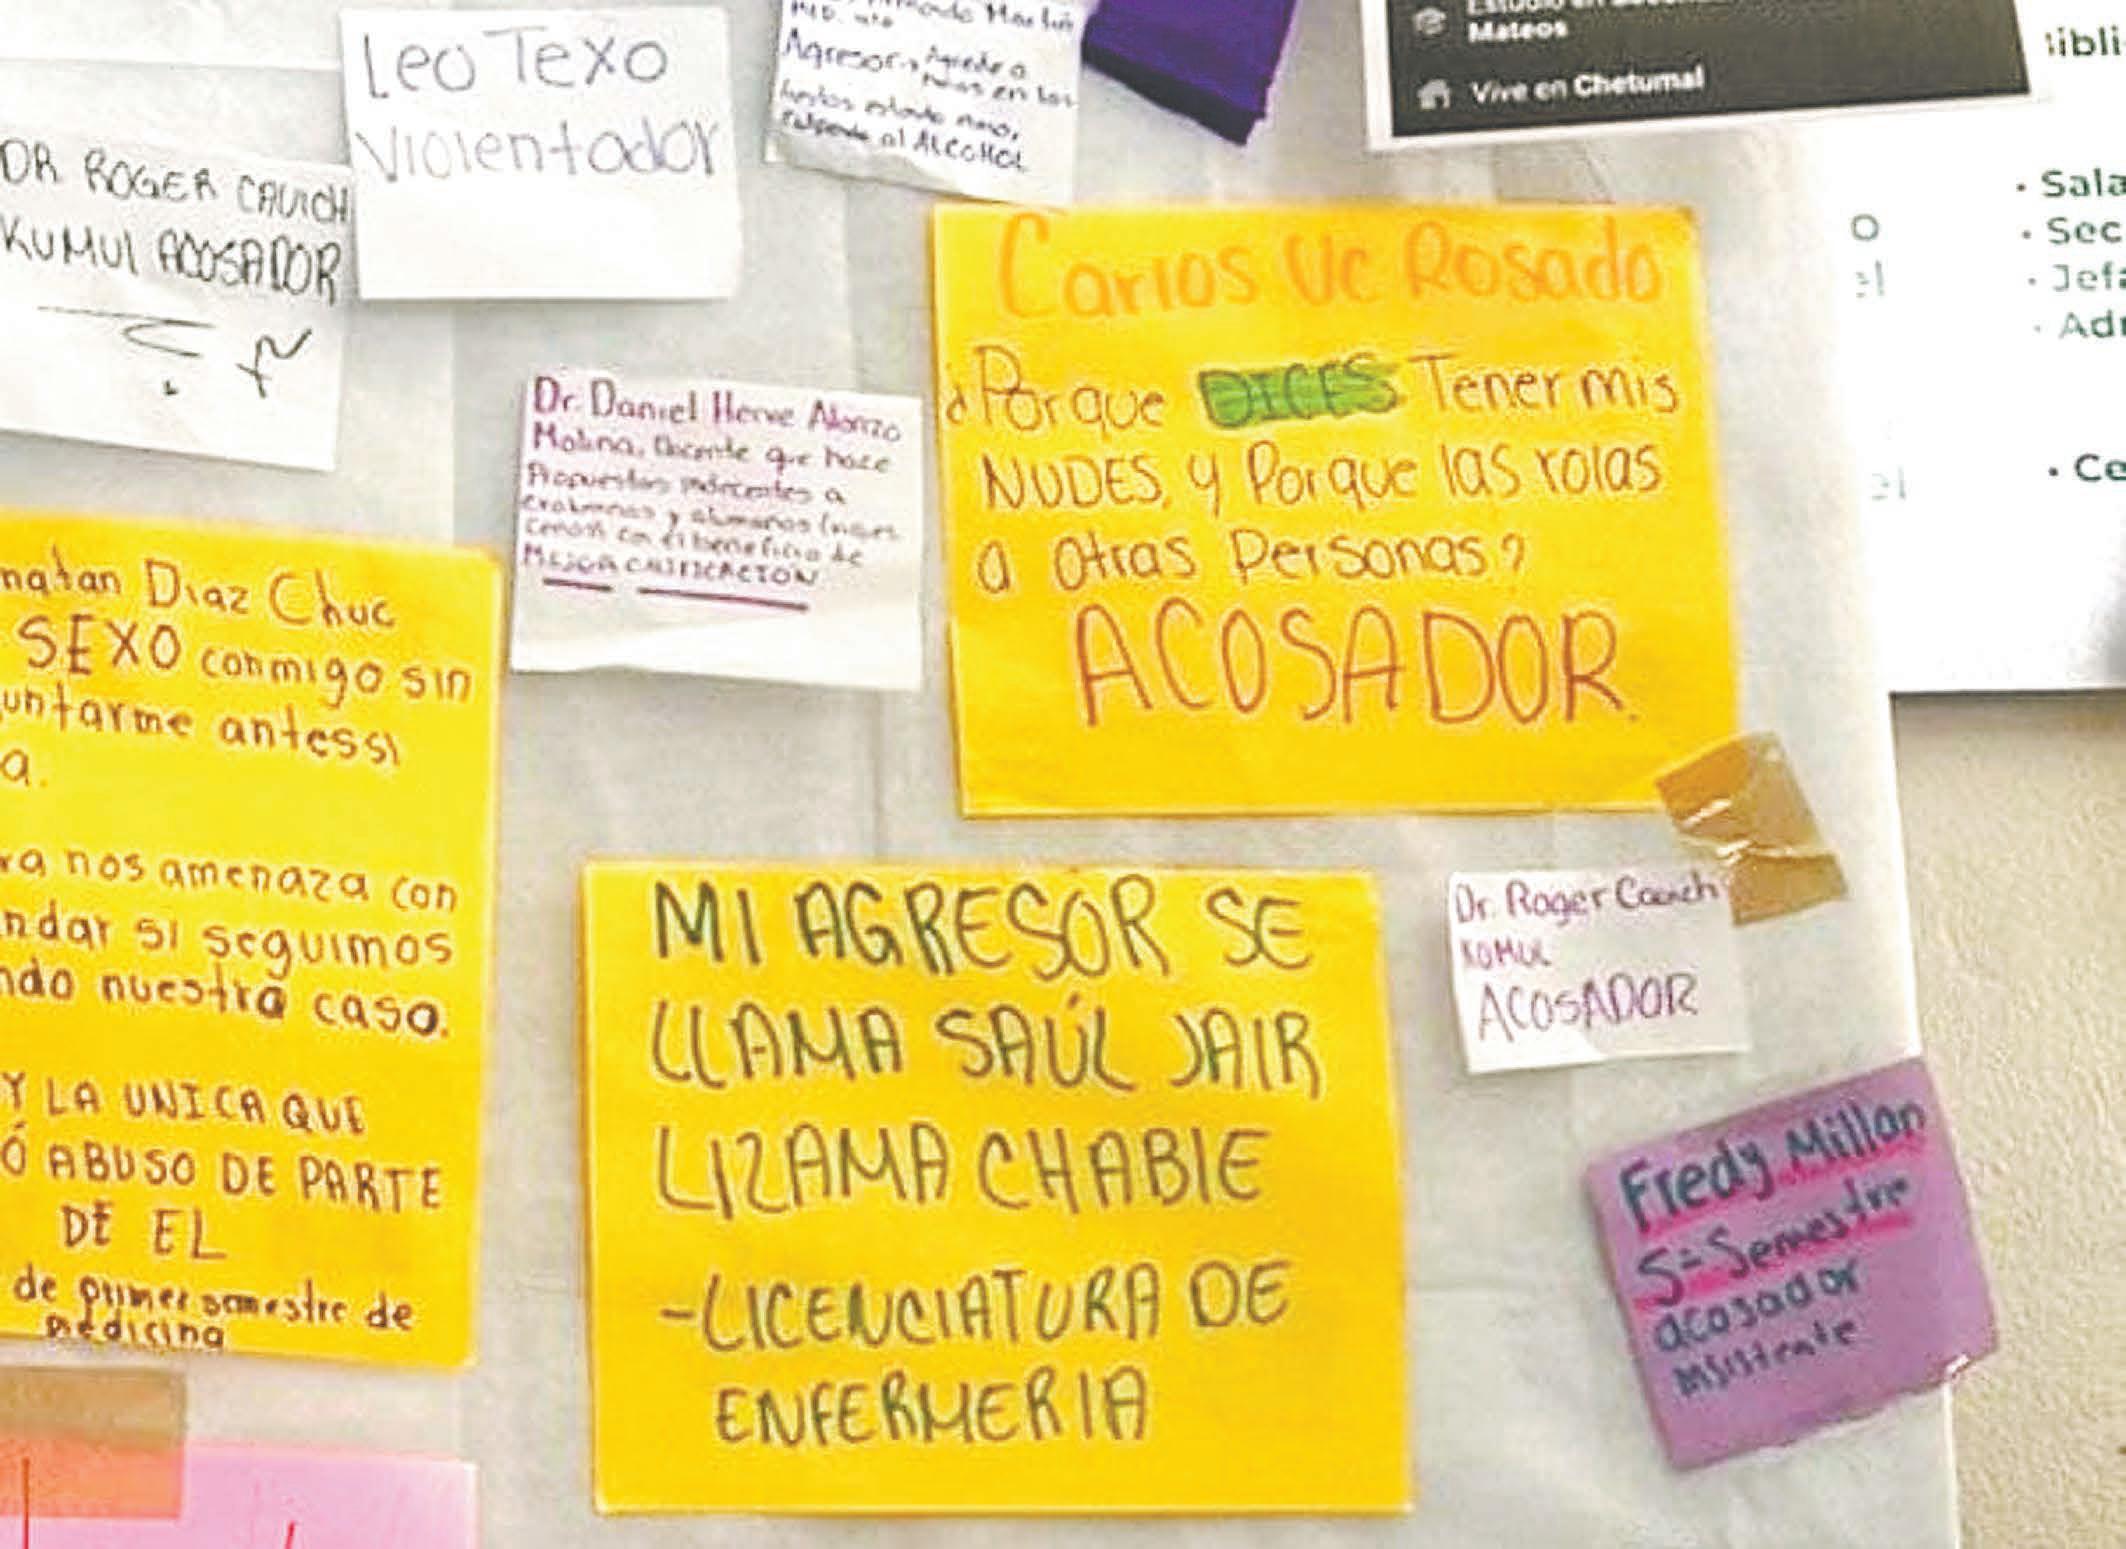 Leo Texo
Violentador
Agresor, Agrede a
en las
fiestas estando
al ALCOHOL
Mateos
Vive en Chetumal
DR ROGER CAUICH
KUMUL ACOSADOR
Carlos Uc Rosado
¿Porque DICES Tener mis
NUDES, y Porque las rolas
a otras Personas?
ACOSADOR.
Dr. Daniel Herve Alonzo
Molina, Docente que hace
Propuestas indecentes a
exalumnas y alumnas
con el beneficio de
MEJOR CALIFICACION
natan Diaz Chuc
SEXO conmigo sin
untarme antes si
a.
ra nos amenaza con
ndar si seguimos
ndo nuestra caso.
Y LA UNICA QUE
Ó ABUSO DE PARTE
DE EL
de primer semestre de
medicina
MI AGRESOR SE
LLAMA SAÚL JAIR
LIZAMA CHABLE
-LICENCIATURA DE
ENFERMERIA
Dr. Roger Cauich
KUMUL
ACOSADOR
Fredy Millan
5= Semestre
acosador
insistente
• Sala
• Sec
• Jefa
• Ce